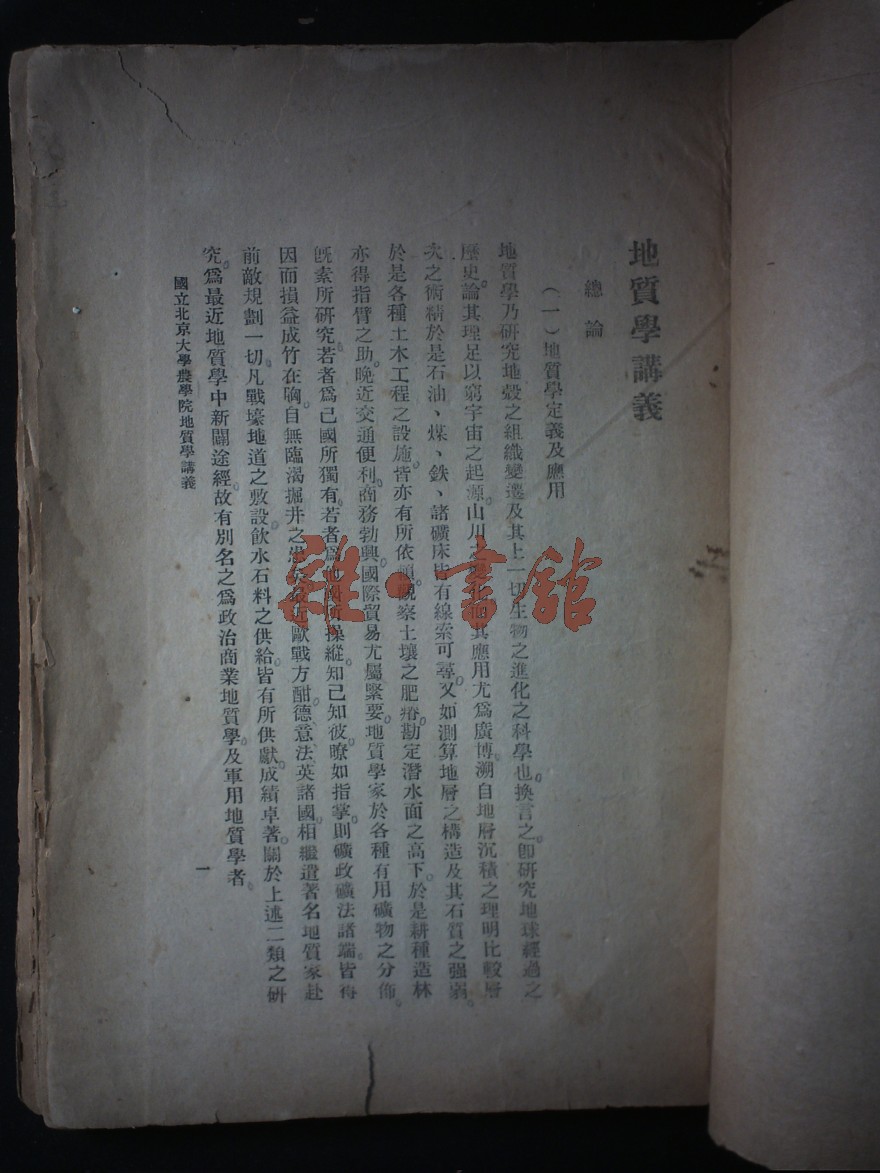 地質學講義
總論
(一)地質學定義及應用
地質學乃研究地殼之組織變遷及其上一切生物之進化之科學也。換言之。卽研究地球經過之
歷史。論其理足以窮宇宙之起源。山川之變化。而其應用尤爲廣博。溯自地層沉積之理明比較層
次之術精。於是石油、煤、鉄、諸礦床皆有線索可尋。又如測算地層之構造及其石質之强弱。
於是各種土木工程之設施。皆亦有所依賴。觀察土壤之肥瘠。勘定潛水面之高下。於是耕種造林
亦得指臂之助。晚近交通便利。商務勃興。國際貿易尤屬緊要。地質學家於各種有用礦物之分佈。
旣素所研究。若者爲己國所獨有。若者爲他國所操縱。知己知彼。瞭如指掌。則礦政礦法諸端。皆得
因而損益。成竹在胸。自無臨渴掘井之患。最近歐戰方酣。德、意、法、英諸國。相繼遣著名地質家赴
前敵規劃一切。凡戰壕地道之敷設。飲水石料之供給。皆有所供獻。成績卓著。關於上述二類之研
究。爲最近地質學中新闢途經。故有別名之爲政治商業地質學。及軍用地質學者。
國立北京大學農學院地質學講義
一
雜·書舘